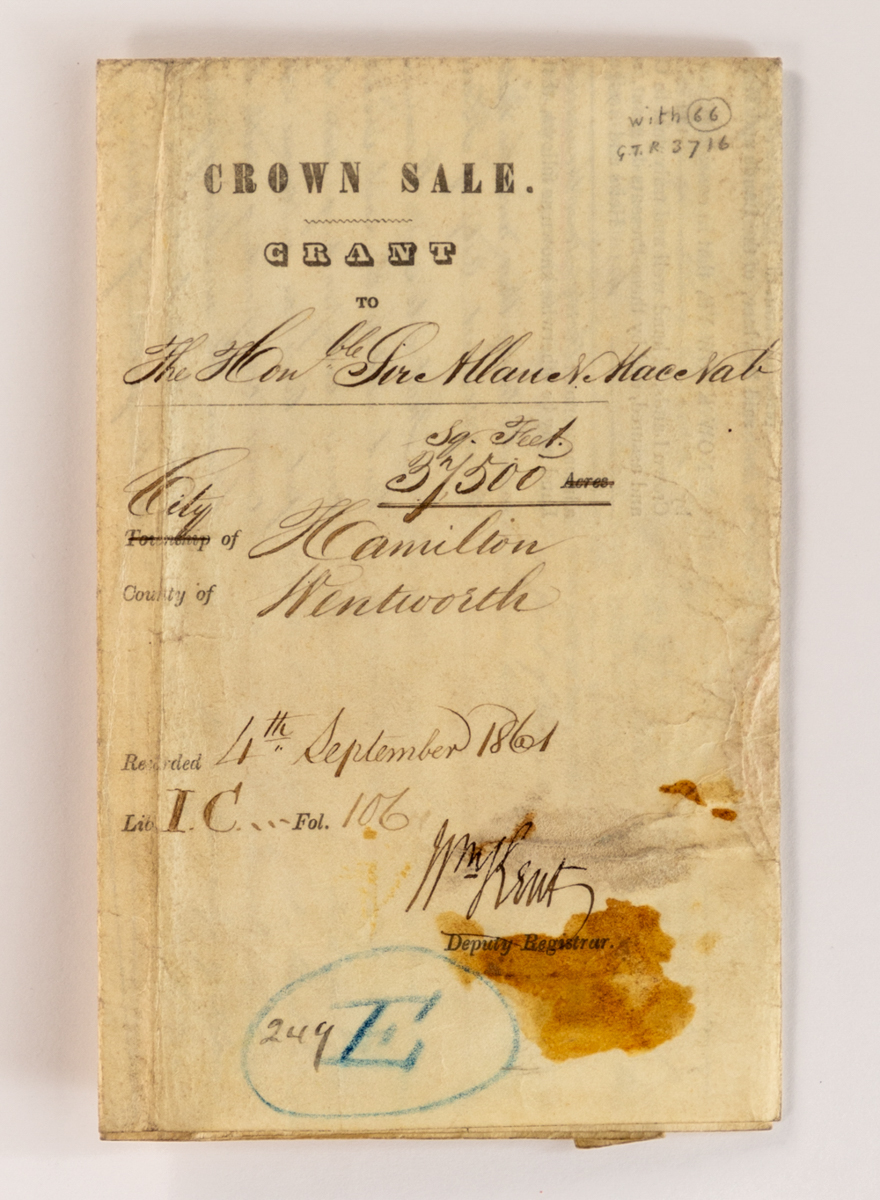 with 66
G.T.R 3716
CROWN SALE.
GRANT
TO
The Honble Sir Allan N. MacNab
Sq. Feet.
37500 Acres.
City
Township of Hamilton
County of Wentworth
Recorded 4th September 1861
Lib. I. C. Fol. 106
Wm Kent
Deputy Registrar.
249 E